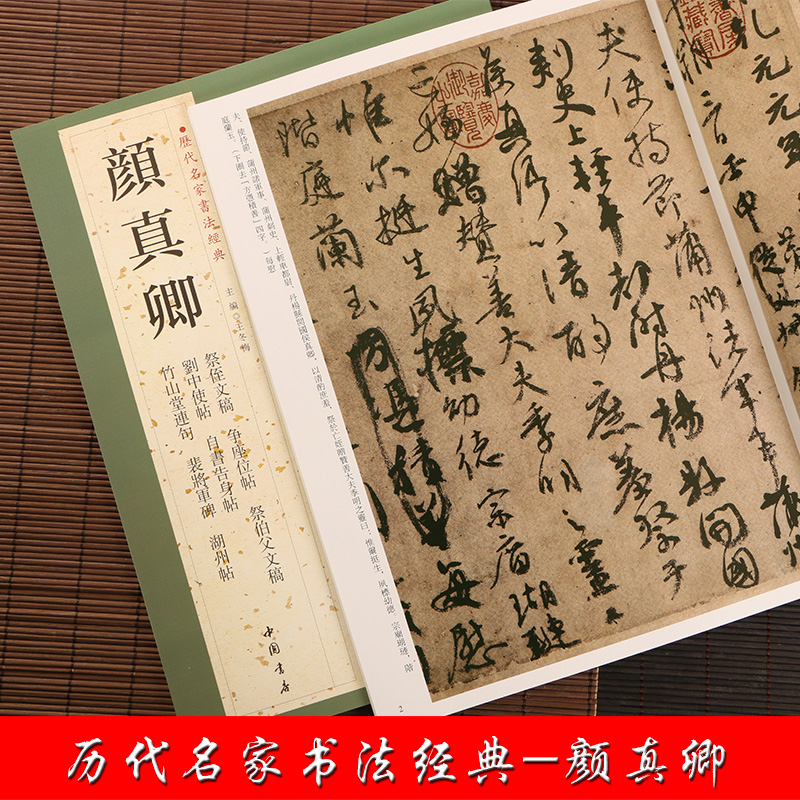 歷代名家書法經典
顏真卿
主編 王冬梅
祭侄文稿 爭座位帖 祭伯父文稿
劉中使帖 自書告身帖
竹山堂連句 裴將軍碑 湖州帖
中国書店
夫使持節蒲州諸軍事蒲州
刺史上輕車都尉丹楊縣開國
侯真卿以清酌庶羞祭于
亡姪贈贊善大夫季明之靈
惟尔挺生夙標幼德宗廟瑚璉
階庭蘭玉方憑積善每慰
夫、使持節、蒲州諸軍事、蒲州刺史、上輕車都尉、丹楊縣開國侯真卿，以清酌庶羞，祭於亡姪贈贊善大夫季明之靈曰：惟爾挺生，夙標幼德。宗廟瑚璉，階
庭蘭玉，（下圈去「方憑積善」四字。）每慰
2
历代名家书法经典—颜真卿